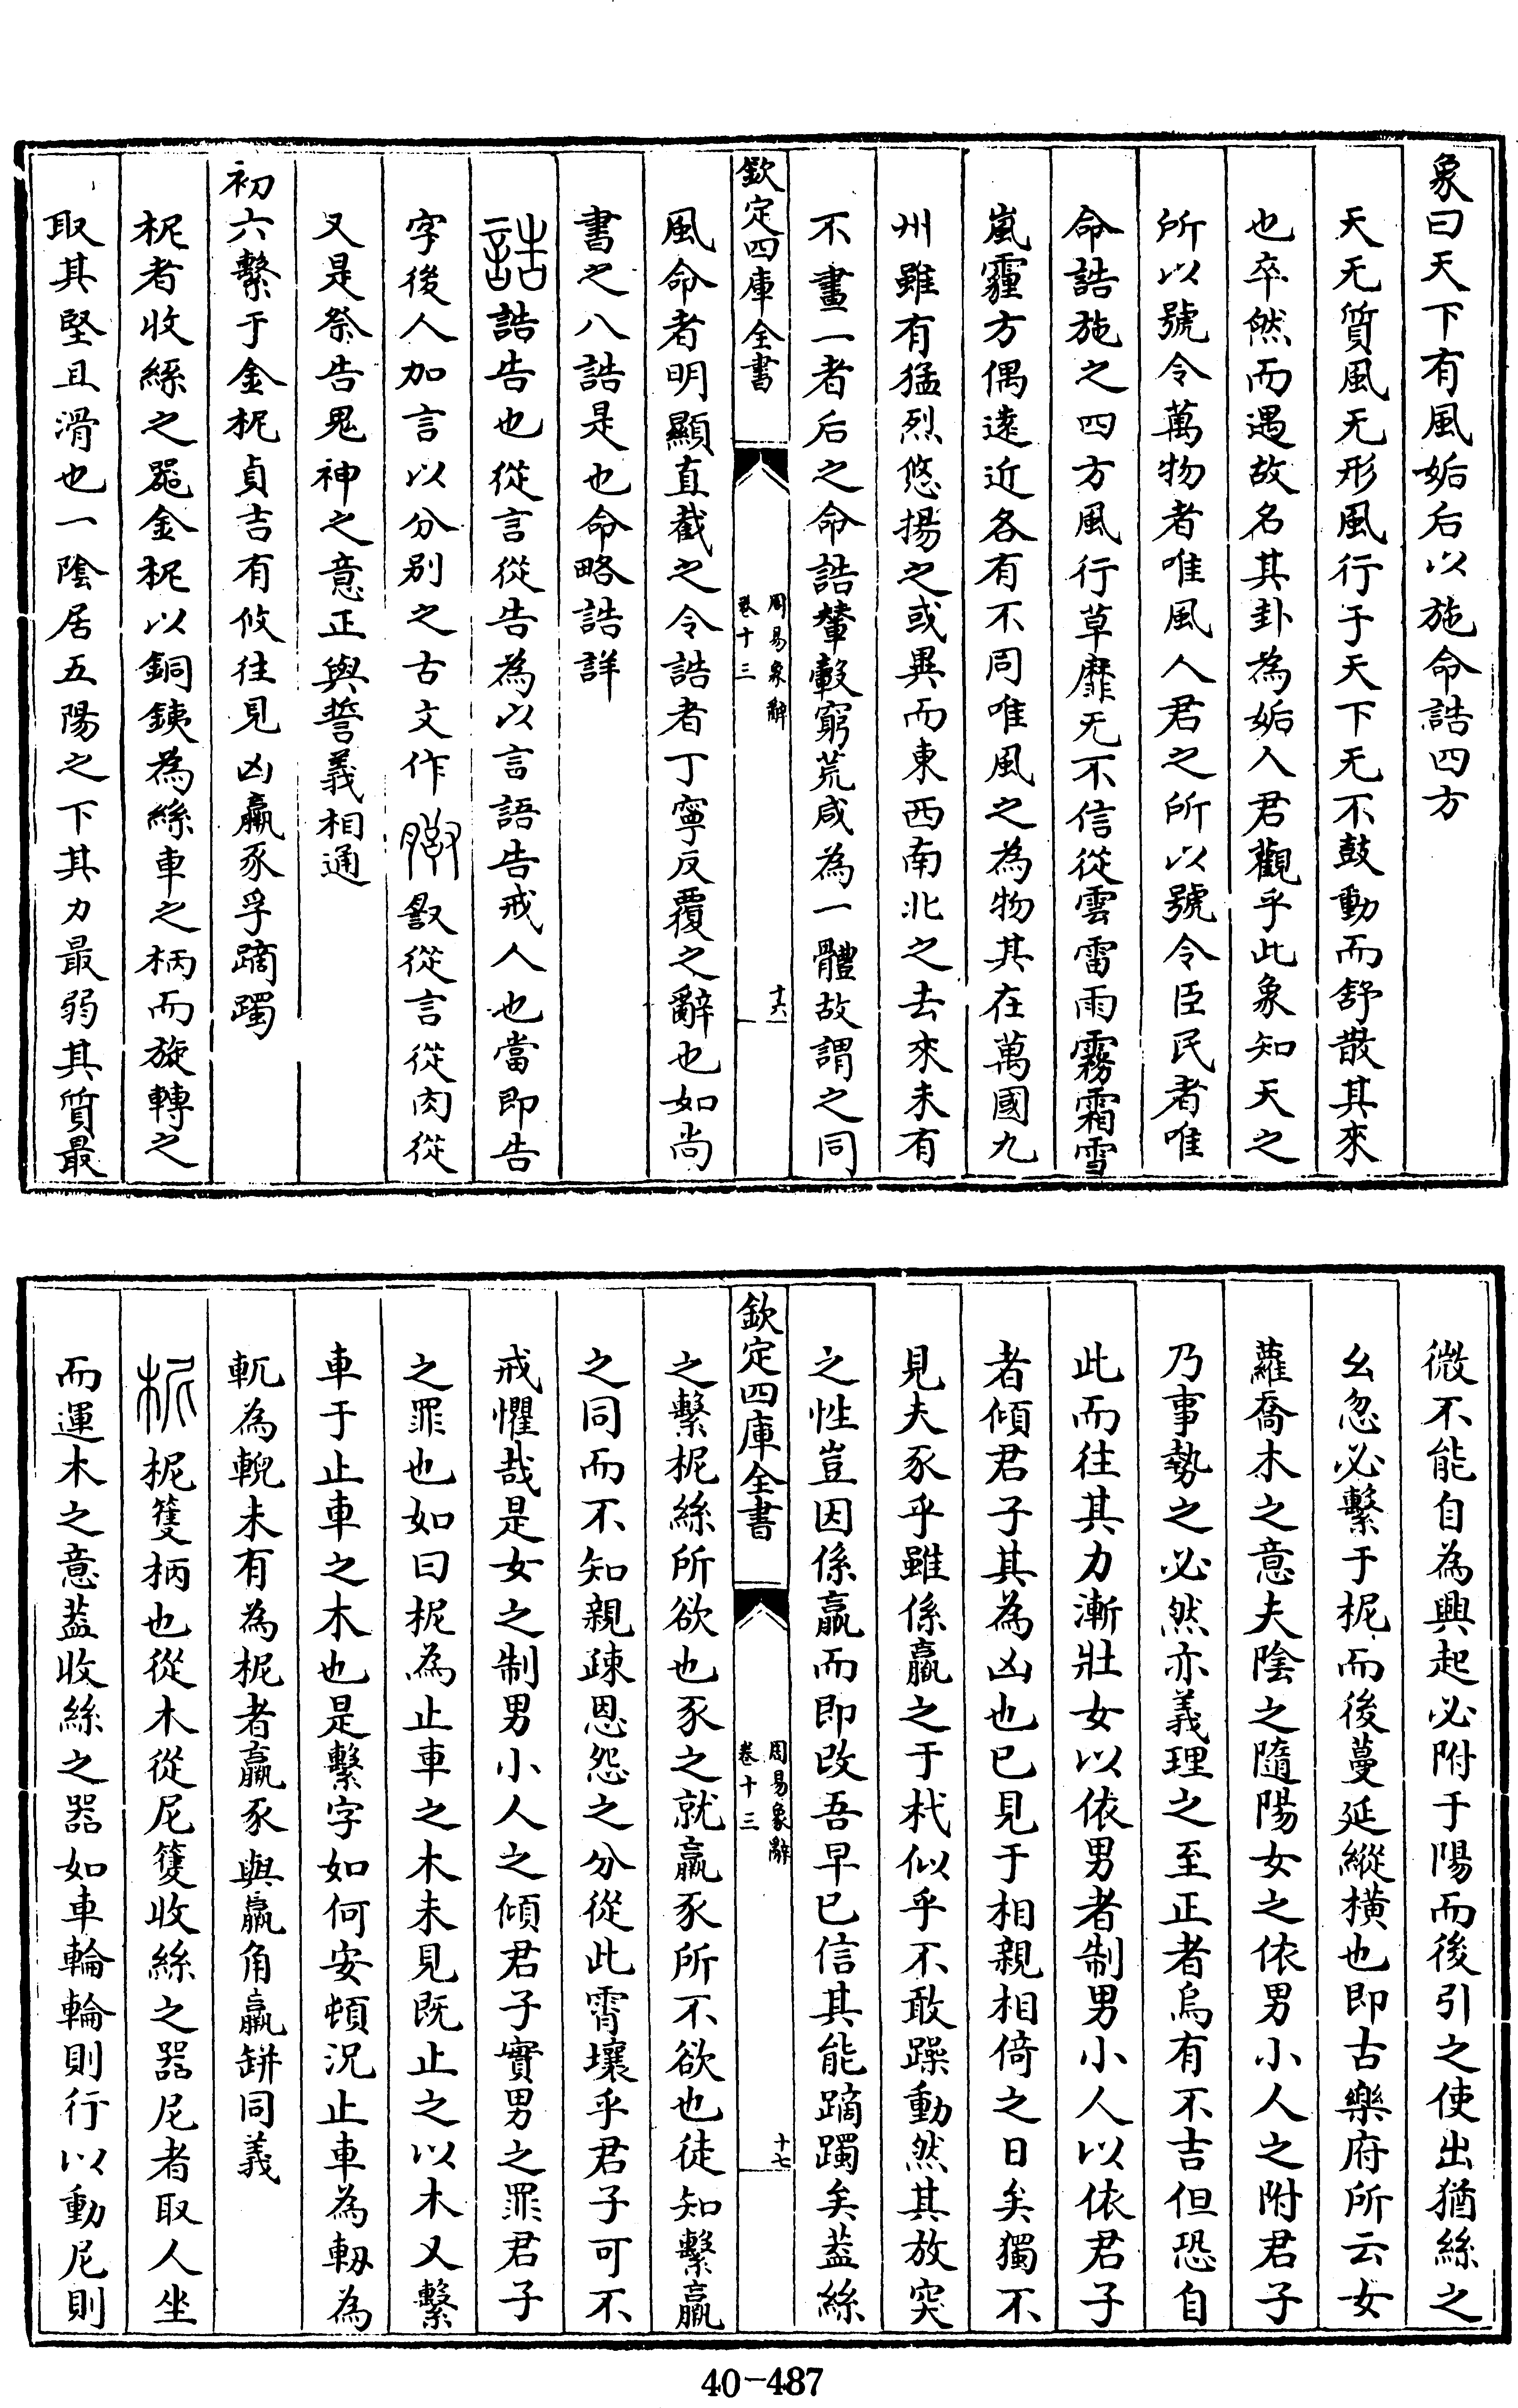 象曰天下有風姤后以施命誥四方
天无質風无形風行于天下无不鼓動而舒散其來
也卒然而遇故名其卦為姤人君觀乎此象知天之
所以號令萬物者唯風人君之所以號令臣民者唯
命誥施之四方風行草靡无不信從雲雷雨霧霜雪
嵐霾方偶逺近各有不同唯風之為物其在萬國九
州雖有猛烈悠揚之或異而東西南北之去來未有
不畫一者后之命誥輦轂窮荒咸為一體故謂之同
欽定四庫全書
周易象辭
卷十三
十六
風命者明顯直截之令誥者丁寧反覆之辭也如尚
書之八誥是也命略誥詳
誥誥告也從言從告為以言語告戒人也當即告
字後人加言以分别之古文作從言從肉從
又是祭告鬼神之意正與誓義相通
初六繫于金柅貞吉有攸往見凶羸豕孚蹢躅
柅者收絲之器金柅以銅銕為絲車之柄而旋轉之
取其堅且滑也一隂居五陽之下其力最弱其質最
微不能自為興起必附于陽而後引之使出猶絲之
幺忽必繫于柅而後蔓延縱橫也即古樂府所云女
蘿喬木之意夫隂之隨陽女之依男小人之附君子
乃事勢之必然亦義理之至正者烏有不吉但恐自
此而往其力漸壯女以依男者制男小人以依君子
者傾君子其為凶也已見于相親相倚之日矣獨不
見夫豕乎雖係羸之于杙似乎不敢躁動然其放突
之性豈因係羸而即改吾早已信其能蹢躅矣葢絲
欽定四庫全書
周易象辭
卷十三
十七
之繫柅絲所欲也豕之就羸豕所不欲也徒知繫羸
之同而不知親疎恩怨之分從此霄壤乎君子可不
戒懼哉是女之制男小人之傾君子實男之罪君子
之罪也如曰柅為止車之木未見既止之以木又繫
車于止車之木也是繫字如何安頓況止車為軔為
軏為輗未有為柅者羸豕與羸角羸缾同義
柅柅籆柄也從木從尼籆收絲之器尼者取人坐
而運木之意葢收絲之器如車輪輪則行以動尼則
40-487